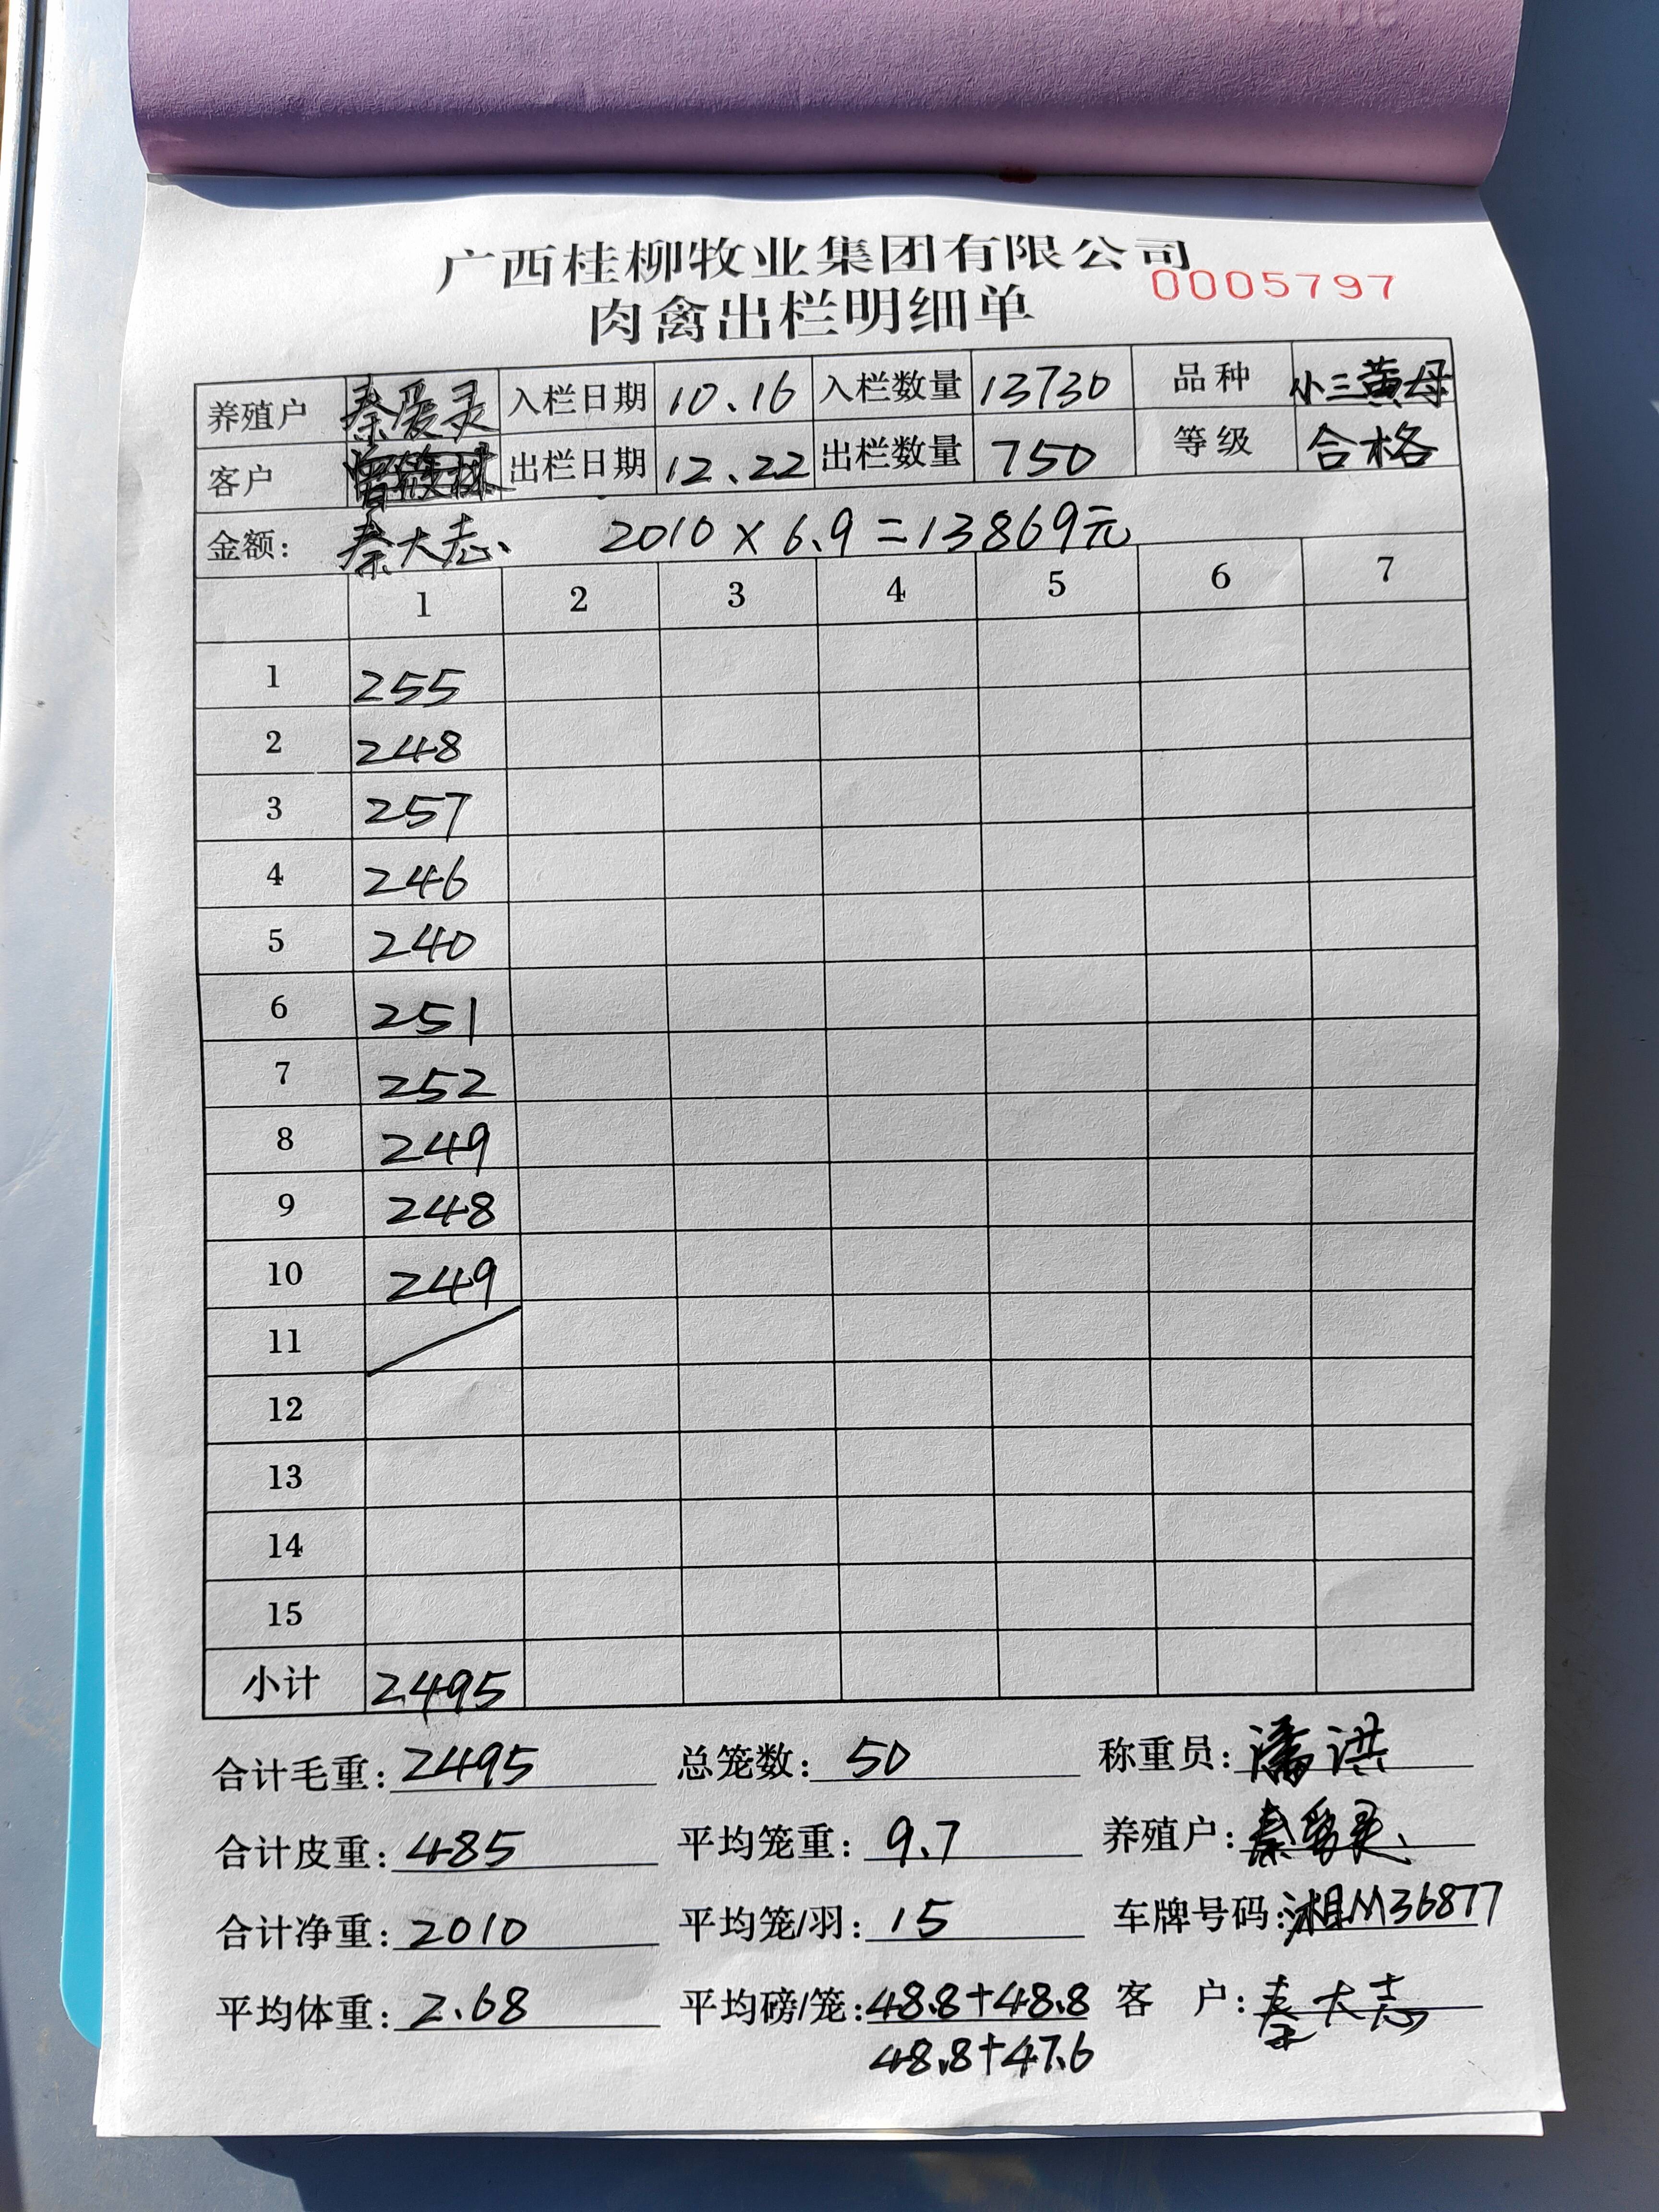 广西桂柳牧业集团有限公司
0005797
肉禽出栏明细单
养殖户 秦爱灵 入栏日期 10.16 入栏数量 13730 品种 小三黄母
客户 出栏日期 12.22 出栏数量 750 等级 合格
金额: 秦大志、 2010×6.9=13869元
1 2 3 4 5 6 7
1 255
2 248
3 257
4 246
5 240
6 251
7 252
8 249
9 248
10 249
11
12
13
14
15
小计 2495
合计毛重: 2495 总笼数: 50 称重员: 潘洪
合计皮重: 485 平均笼重: 9.7 养殖户: 秦爱灵、
合计净重: 2010 平均笼/羽: 15 车牌号码: 湘M36877
平均体重: 2.68 平均磅/笼: 48.8+48.8 客 户: 秦大志
48.8+47.6